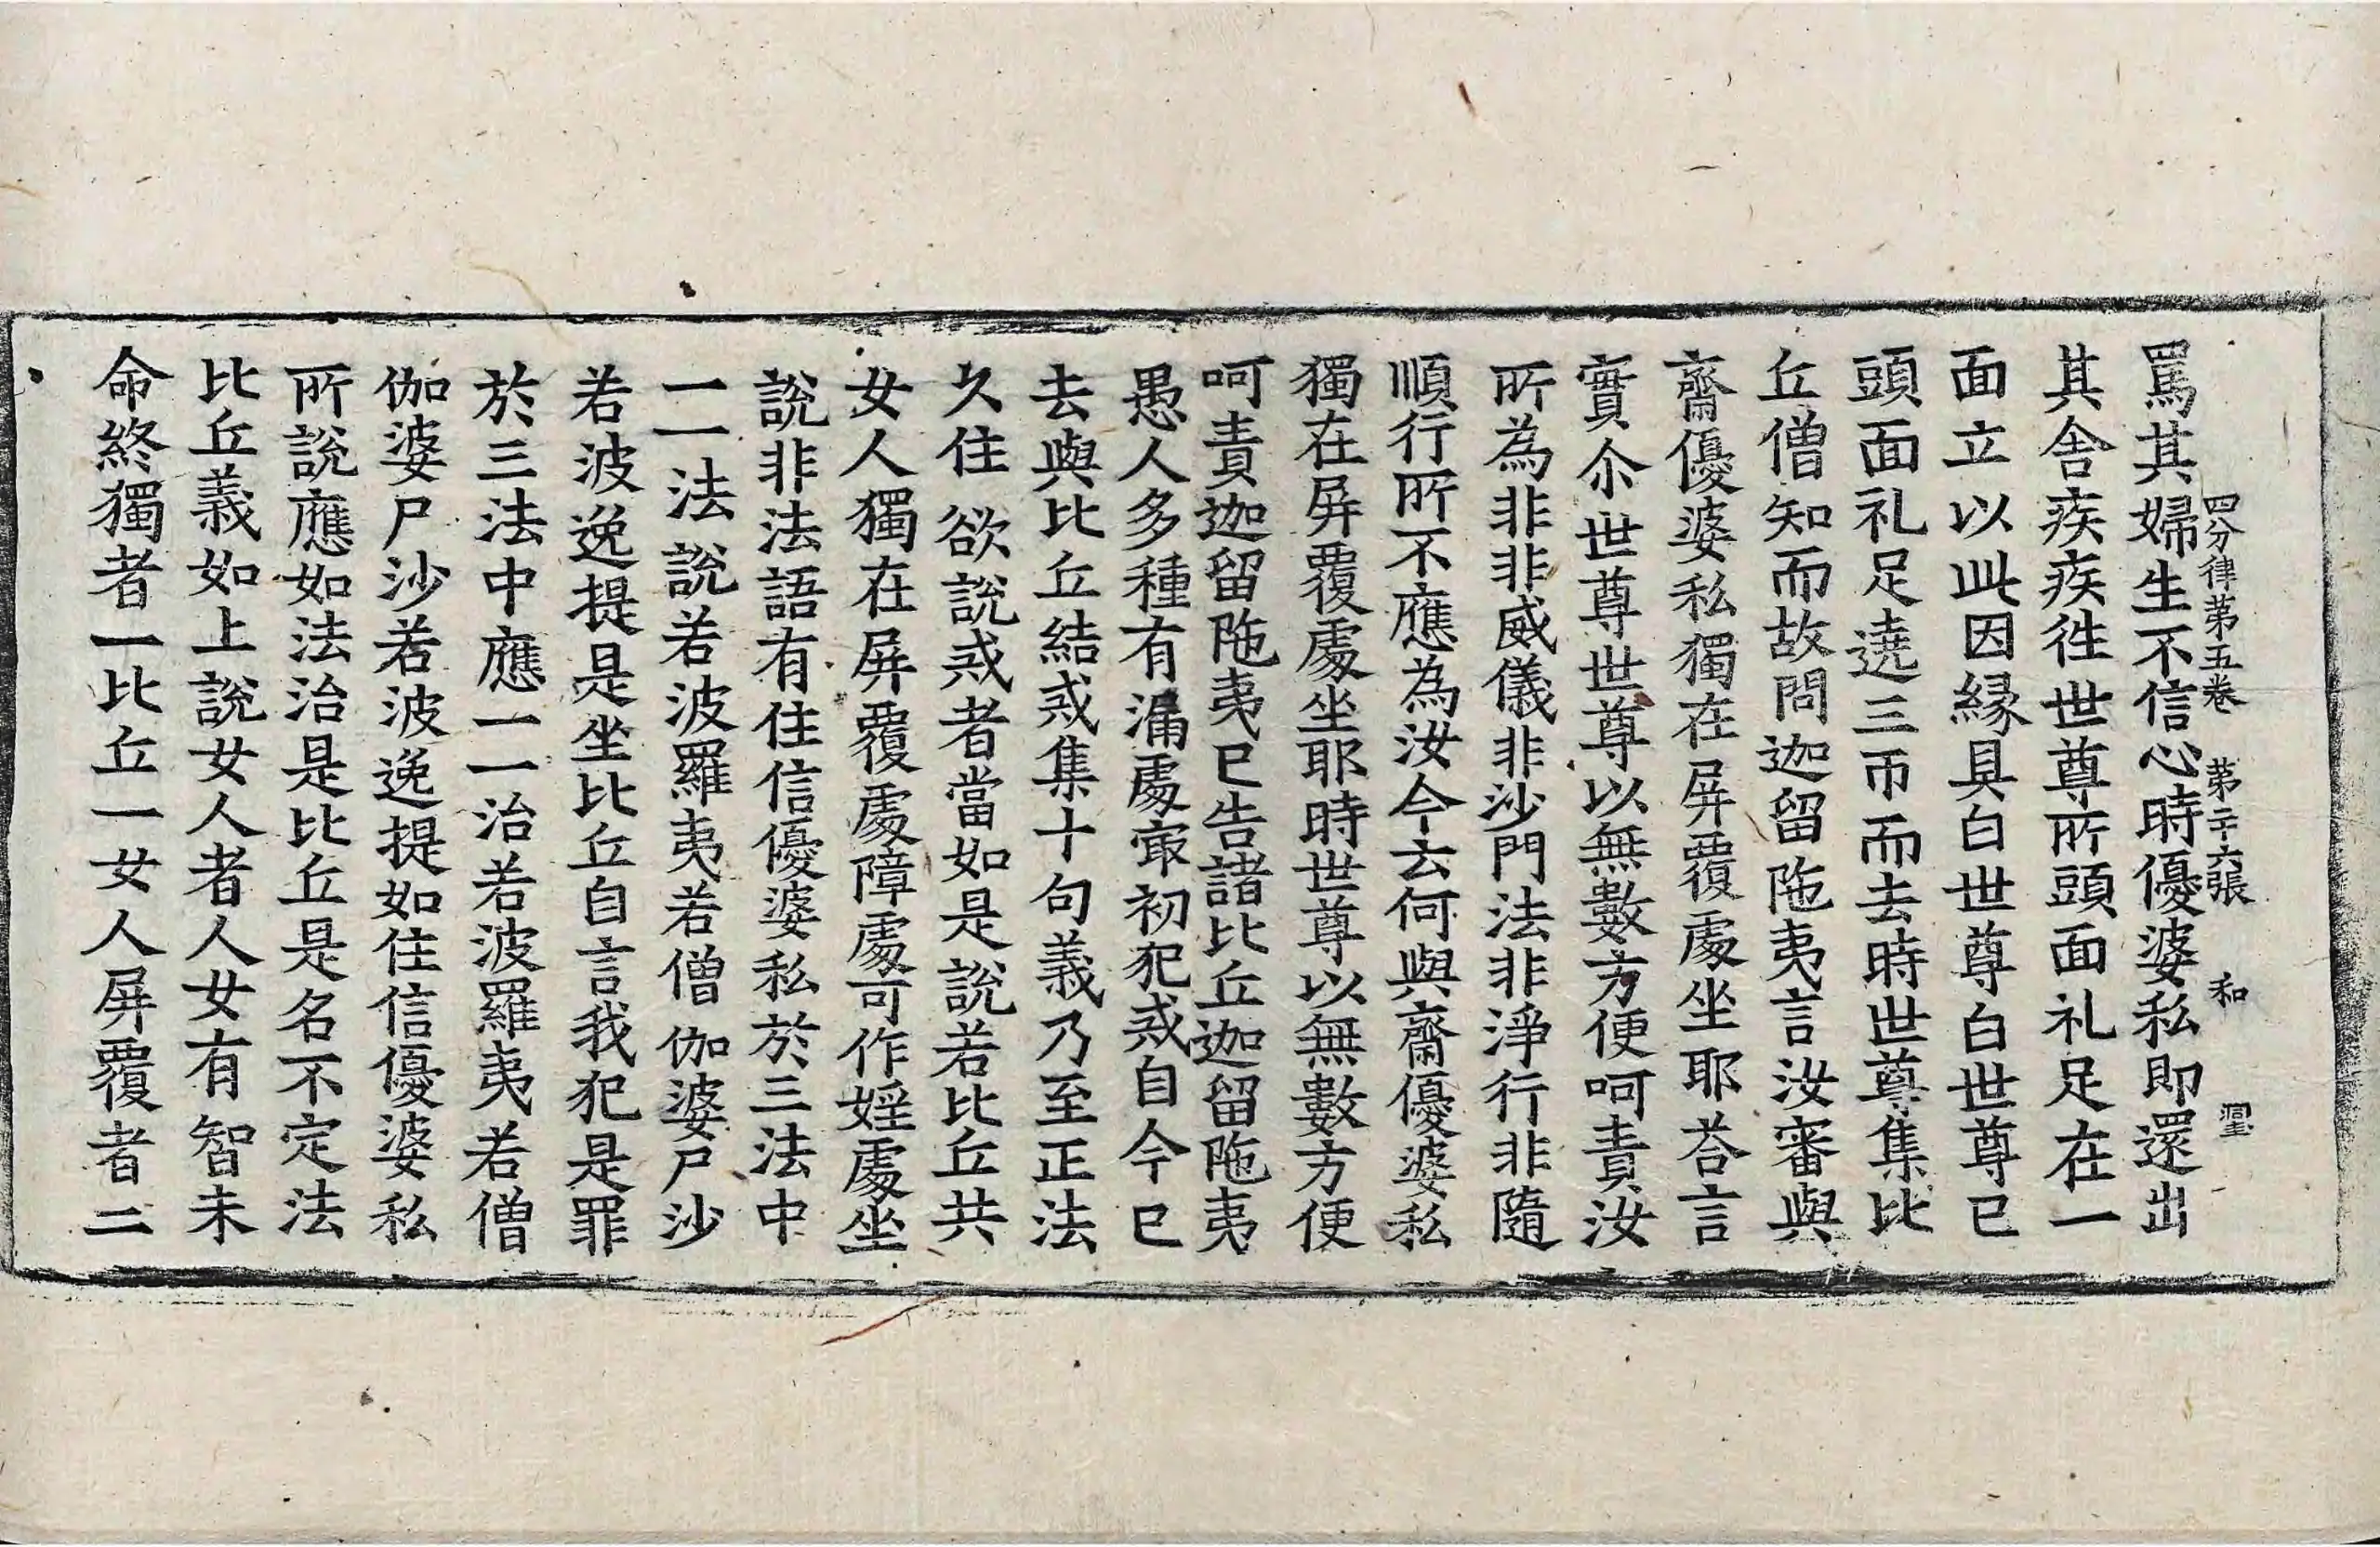 四分律苐五卷 苐二十六張 和
罵其婦生不信心時優婆私即還出
其舎疾疾徃世尊所頭面礼足在一
面立以此因縁具白世尊白世尊已
頭面礼足遶三帀而去時世尊集比
丘僧知而故問迦留陁夷言汝審與
齋優婆私獨在屏覆處坐耶荅言
實尒世尊世尊以無數方便呵責汝
所為非非威儀非沙門法非淨行非隨
順行所不應為汝今云何與齋優婆私
獨在屏覆處坐耶時世尊以無數方便
呵責迦留陁夷已告諸比丘迦留陁夷
愚人多種有漏處㝡初犯戒自今已
去與比丘結戒集十句義乃至正法
久住欲說戒者當如是說若比丘共
女人獨在屏覆處障處可作婬處坐
說非法語有住信優婆私於三法中
一一法說若波羅夷若僧伽婆尸沙
若波逸提是坐比丘自言我犯是罪
於三法中應一一治若波羅夷若僧
伽婆尸沙若波逸提如住信優婆私
所說應如法治是比丘是名不定法
比丘義如上說女人者人女有智未
命終獨者一比丘一女人屏覆者二